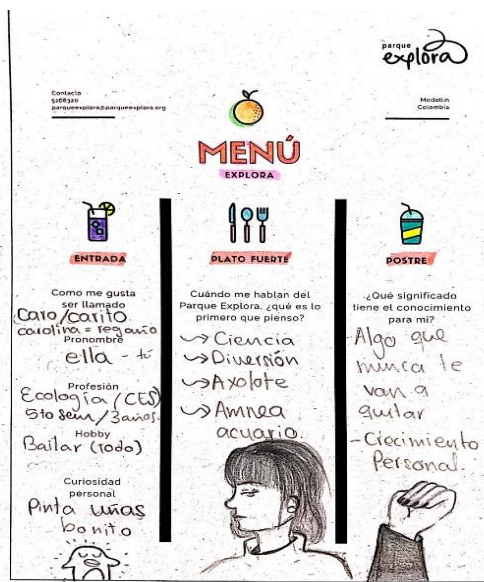 parque
explora
Contacto
5168320
parqueexplora@parqueexplora.org
Medellín
Colombia
MENÚ
EXPLORA
ENTRADA
Como me gusta
ser llamado
Caro/carito
carolina = regaño
Pronombre
ella - tú
Profesión
Ecología (CES)
5to sem/3años.
Hobby
Bailar (todo)
Curiosidad
personal
Pinta uñas
bonito
PLATO FUERTE
Cuándo me hablan del
Parque Explora. ¿qué es lo
primero que pienso?
Ciencia
Diversión
Axolote
Amnea
acuario.
POSTRE
¿Qué significado
tiene el conocimiento
para mí?
-Algo que
nunca te
van a
quitar
-Crecimiento
Personal.